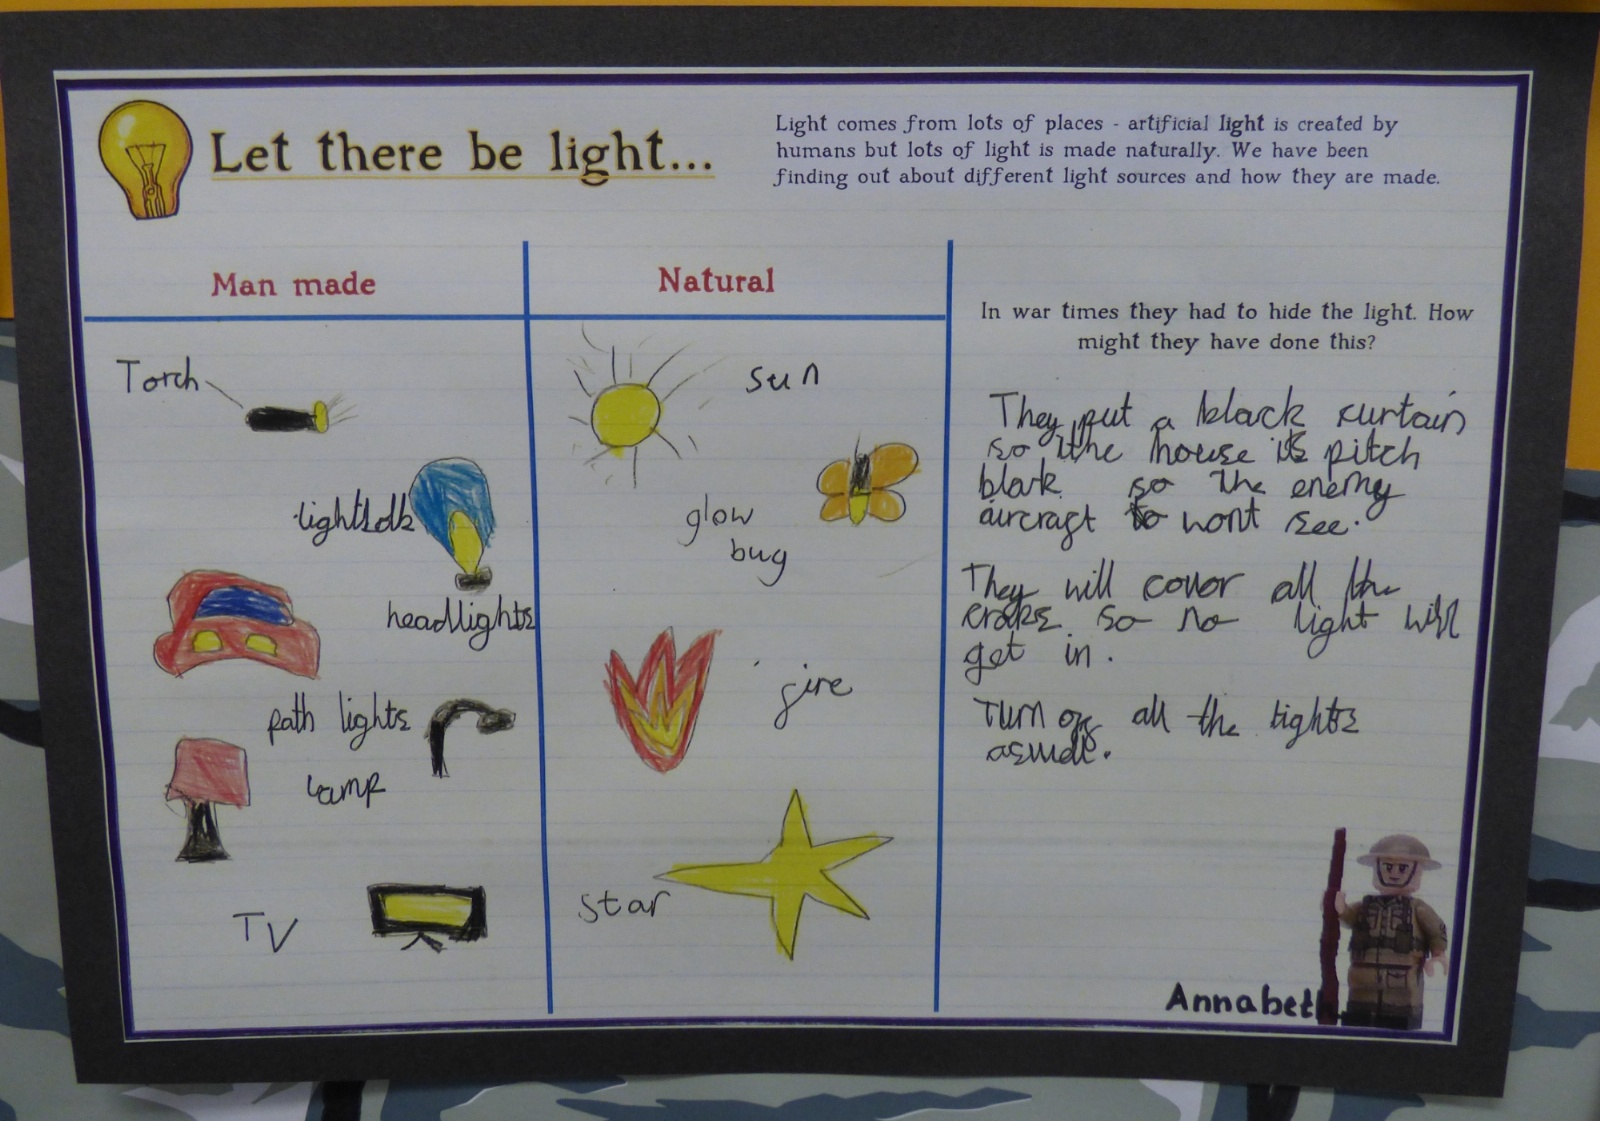 Let there be light...
Light comes from lots of places - artificial light is created by
humans but lots of light is made naturally. We have been
finding out about different light sources and how they are made.
Man made
Torch
headlights
path lights
lamp
TV
Natural
sun
glow
bug
fire
star
In war times they had to hide the light. How
might they have done this?
They put a black curtain
so the house is pitch
blak so the enemy
aircraft to wont see.
They will cover all the
craks so no light will
get in.
Turn off all the lights
aswell.
Annabeth